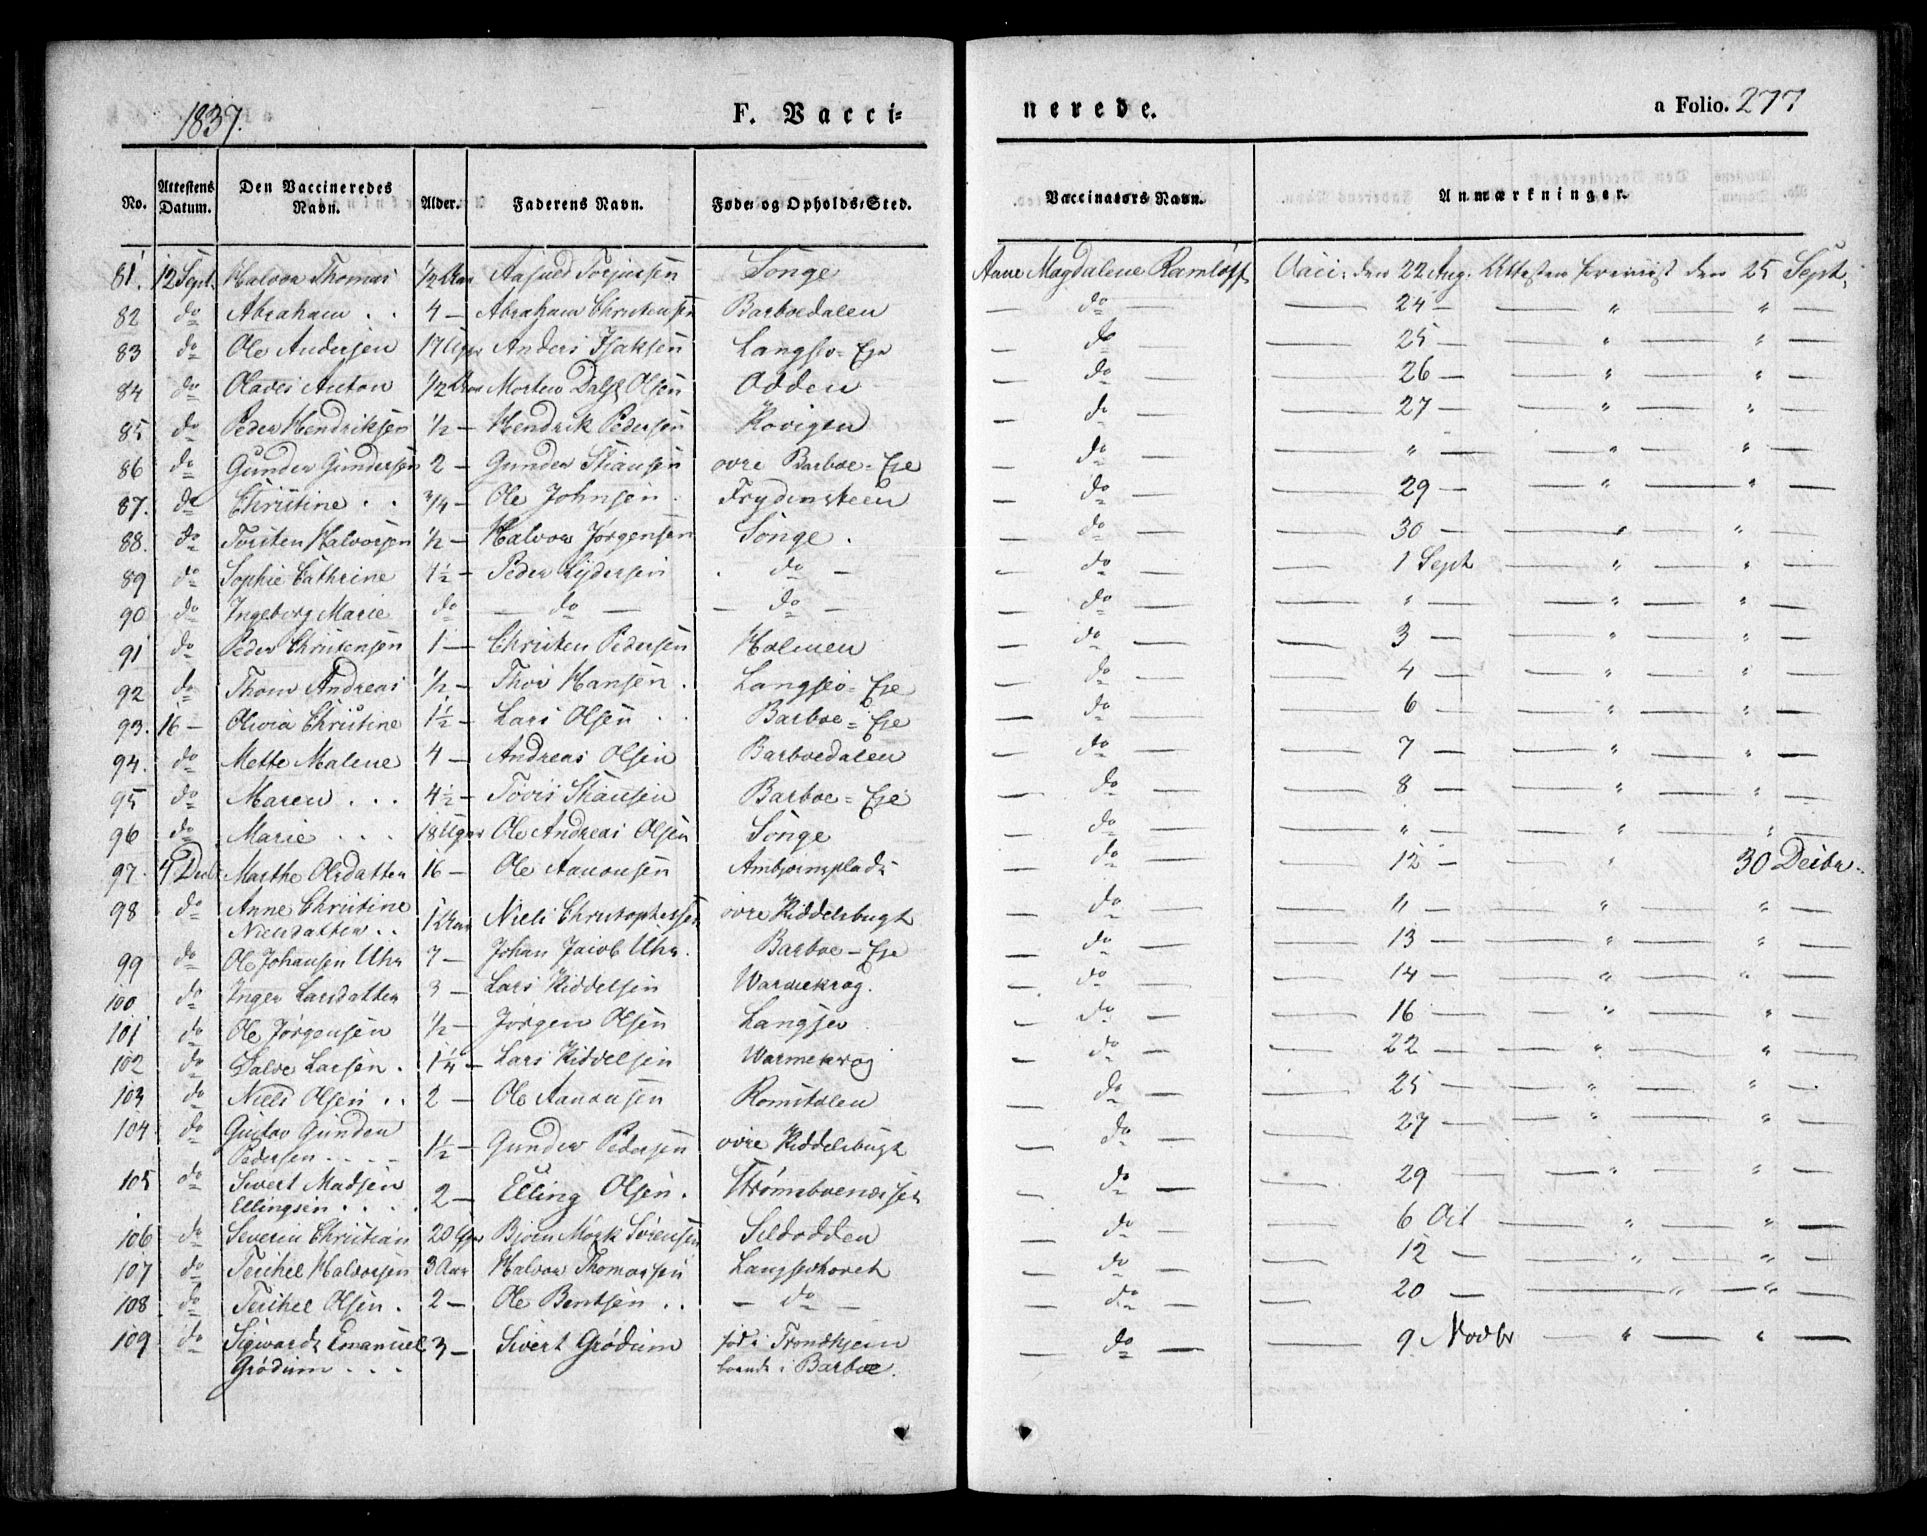 1837. F. Vacci= nerede. a Folio. 277
No. Attestens Datum. Den Vaccineredes Navn. Alder. Faderens Navn. Føde- og Opholds-Sted. Vaccinators Navn. Anmærkninger.
81. 12 Sept. Halvor Thomas 1/2 Aar Aasued Torjusen Songe Anne Magdalene Ramløff Vacc: den 22 Aug. Attesten den 25 Sept.
82 do Abraham . . 4 — Abraham Christensen Barboedalen — do — — 24 — " — " —
83 do Ole Andersen 17 Uger Anders Isaksen Langsev=Eje — do — — 25 — " — " —
84 do Olaves Anton 1/2 Aar Morten Dahl Olsen Odden — do — — 26 — " — " —
85 do Peder Hendriksen 1/2 — Hendrik Pedersen Kovigen — do — — 27 — " — " —
86 do Gunder Gundersen 2 — Gunder Stiansen øvre Barboe=Eje — do — — " — " — " —
87. do Christine . . 3/4 — Ole Johnsen . Frydensteen — do — — 29 — " — " —
88. do Torsten Halvorsen 1/2 — Halvor Jørgensen Songe . — do — — 30 — " — " —
89 do Sophie Cathrine 4 1/2 — Peder Lydersen . do — — do — — 1 Sept — " — " —
90 do Ingeborg Marie do — do — — do — — do — — " — " — " —
91 do Peder Christensen 1 — Christen Pedersen Holmen — do — — 3 — " — " —
92 do Thom Andreas 1/2 — Thor Hansen . Langsev=Eje — do — — 4 — " — " —
93. 16 — Olivia Christine 1 1/2 — Lars Olsen . . Barboe=Eje — do — — 6 — " — " —
94. do Mette Malene 4 — Andreas Olsen Barboedalen — do — — 7 — " — " —
95 do Maren . . . 4 1/2 — Tovis Stiansen Barboe=Eje — do — — 8 — " — " —
96 do Marie . . . 18 Uger Ole Andreas Olsen Songe — do — — " — " — " —
97. 4 Decb Marthe Olsdatter 16 — Ole Aanonsen Ambjornsplads — do — — 12 — " 30 Decbr.
98 do Anne Christine
Nielsdatter . . 1 Aar Niels Christophersen øvre Kiddelsbugt — do — — " — " — " —
99 do Ole Johansen Uhr 7 — Johan Jacob Uhr. Barboe — Eje — do — — 13 — " — " —
100 do Inger Larsdatter 3 — Lars Kiddelsen Warmekrog. — do — — 14 — " — " —
101 do Ole Jørgensen 1/2 — Jørgen Olsen Langsev — do — — 16 — " — " —
102 do Salve Larsen . 1 1/4 — Lars Kiddelsen Warmekrog — do — — 22 — " — " —
103 do Niels Olsen . . 2 — Ole Aanonsen Romstolen — do — — 25 — " — " — .
104 do Gustav Gunder
Pedersen . . . . 1 1/2 — Gunder Pedersen øvre Kiddelsbugt — do — — 27 — " — " —
105 do Sivert Madsen
Ellingsen . . . . 2 — Elling Olsen . Strømsboenæsset — do — — 29 — " — " —
106 do Severin Christian 20 Uger Bjørn Mørk Sørensen Sildodden — do — — 6 Oct — " — " —
107 do Terchel Halvorsen 3 Aar Halvor Thomassen Langsevhovet — do — — 12 — " — " —
108 do Terchel Olsen . 2 — Ole Bentsen . . — do — — do — — 20 — " — " —
109 do Sigwardt Emanuel
Grødum . . . 3 — Sivert Grødum fød i Trondhjem
boende i Barboe. — do — — 9 Novbr — " — " —